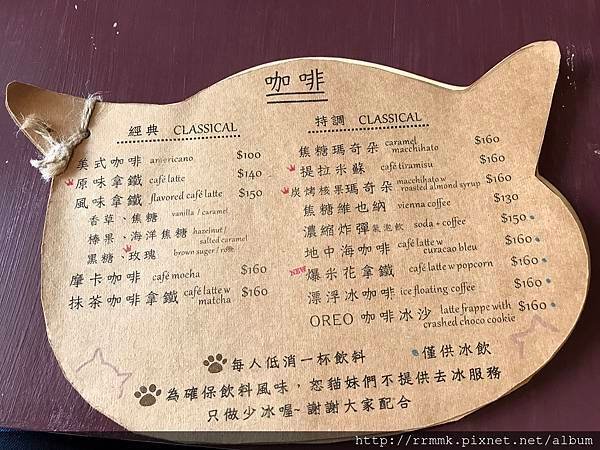 咖啡
經典 CLASSICAL
美式咖啡 americano $100
原味拿鐵 café latte $140
風味拿鐵 flavored café latte $150
香草、焦糖 vanilla / caramel
榛果、海洋焦糖 hazelnut / salted caramel
黑糖、玫瑰 brown suger / rose
摩卡咖啡 café mocha $160
抹茶咖啡拿鐵 café latte w matcha $160
特調 CLASSICAL
焦糖瑪奇朵 caramel macchihato $160
提拉米蘇 café tiramisu $160
炭烤核果瑪奇朵 macchihato w roasted almond syrup $160
焦糖維也納 vienna coffee $130
濃縮炸彈氣泡飲 soda + coffee $150
地中海咖啡 café latte w curacao bleu $160
NEW 爆米花拿鐵 café latte w popcorn $160
漂浮冰咖啡 ice floating coffee $160
OREO 咖啡冰沙 latte frappe with crashed choco cookie $160
每人低消一杯飲料 僅供冰飲
為確保飲料風味，恕貓妹們不提供去冰服務
只做少冰喔~謝謝大家配合
http://rrmmk.pixnet.net/album